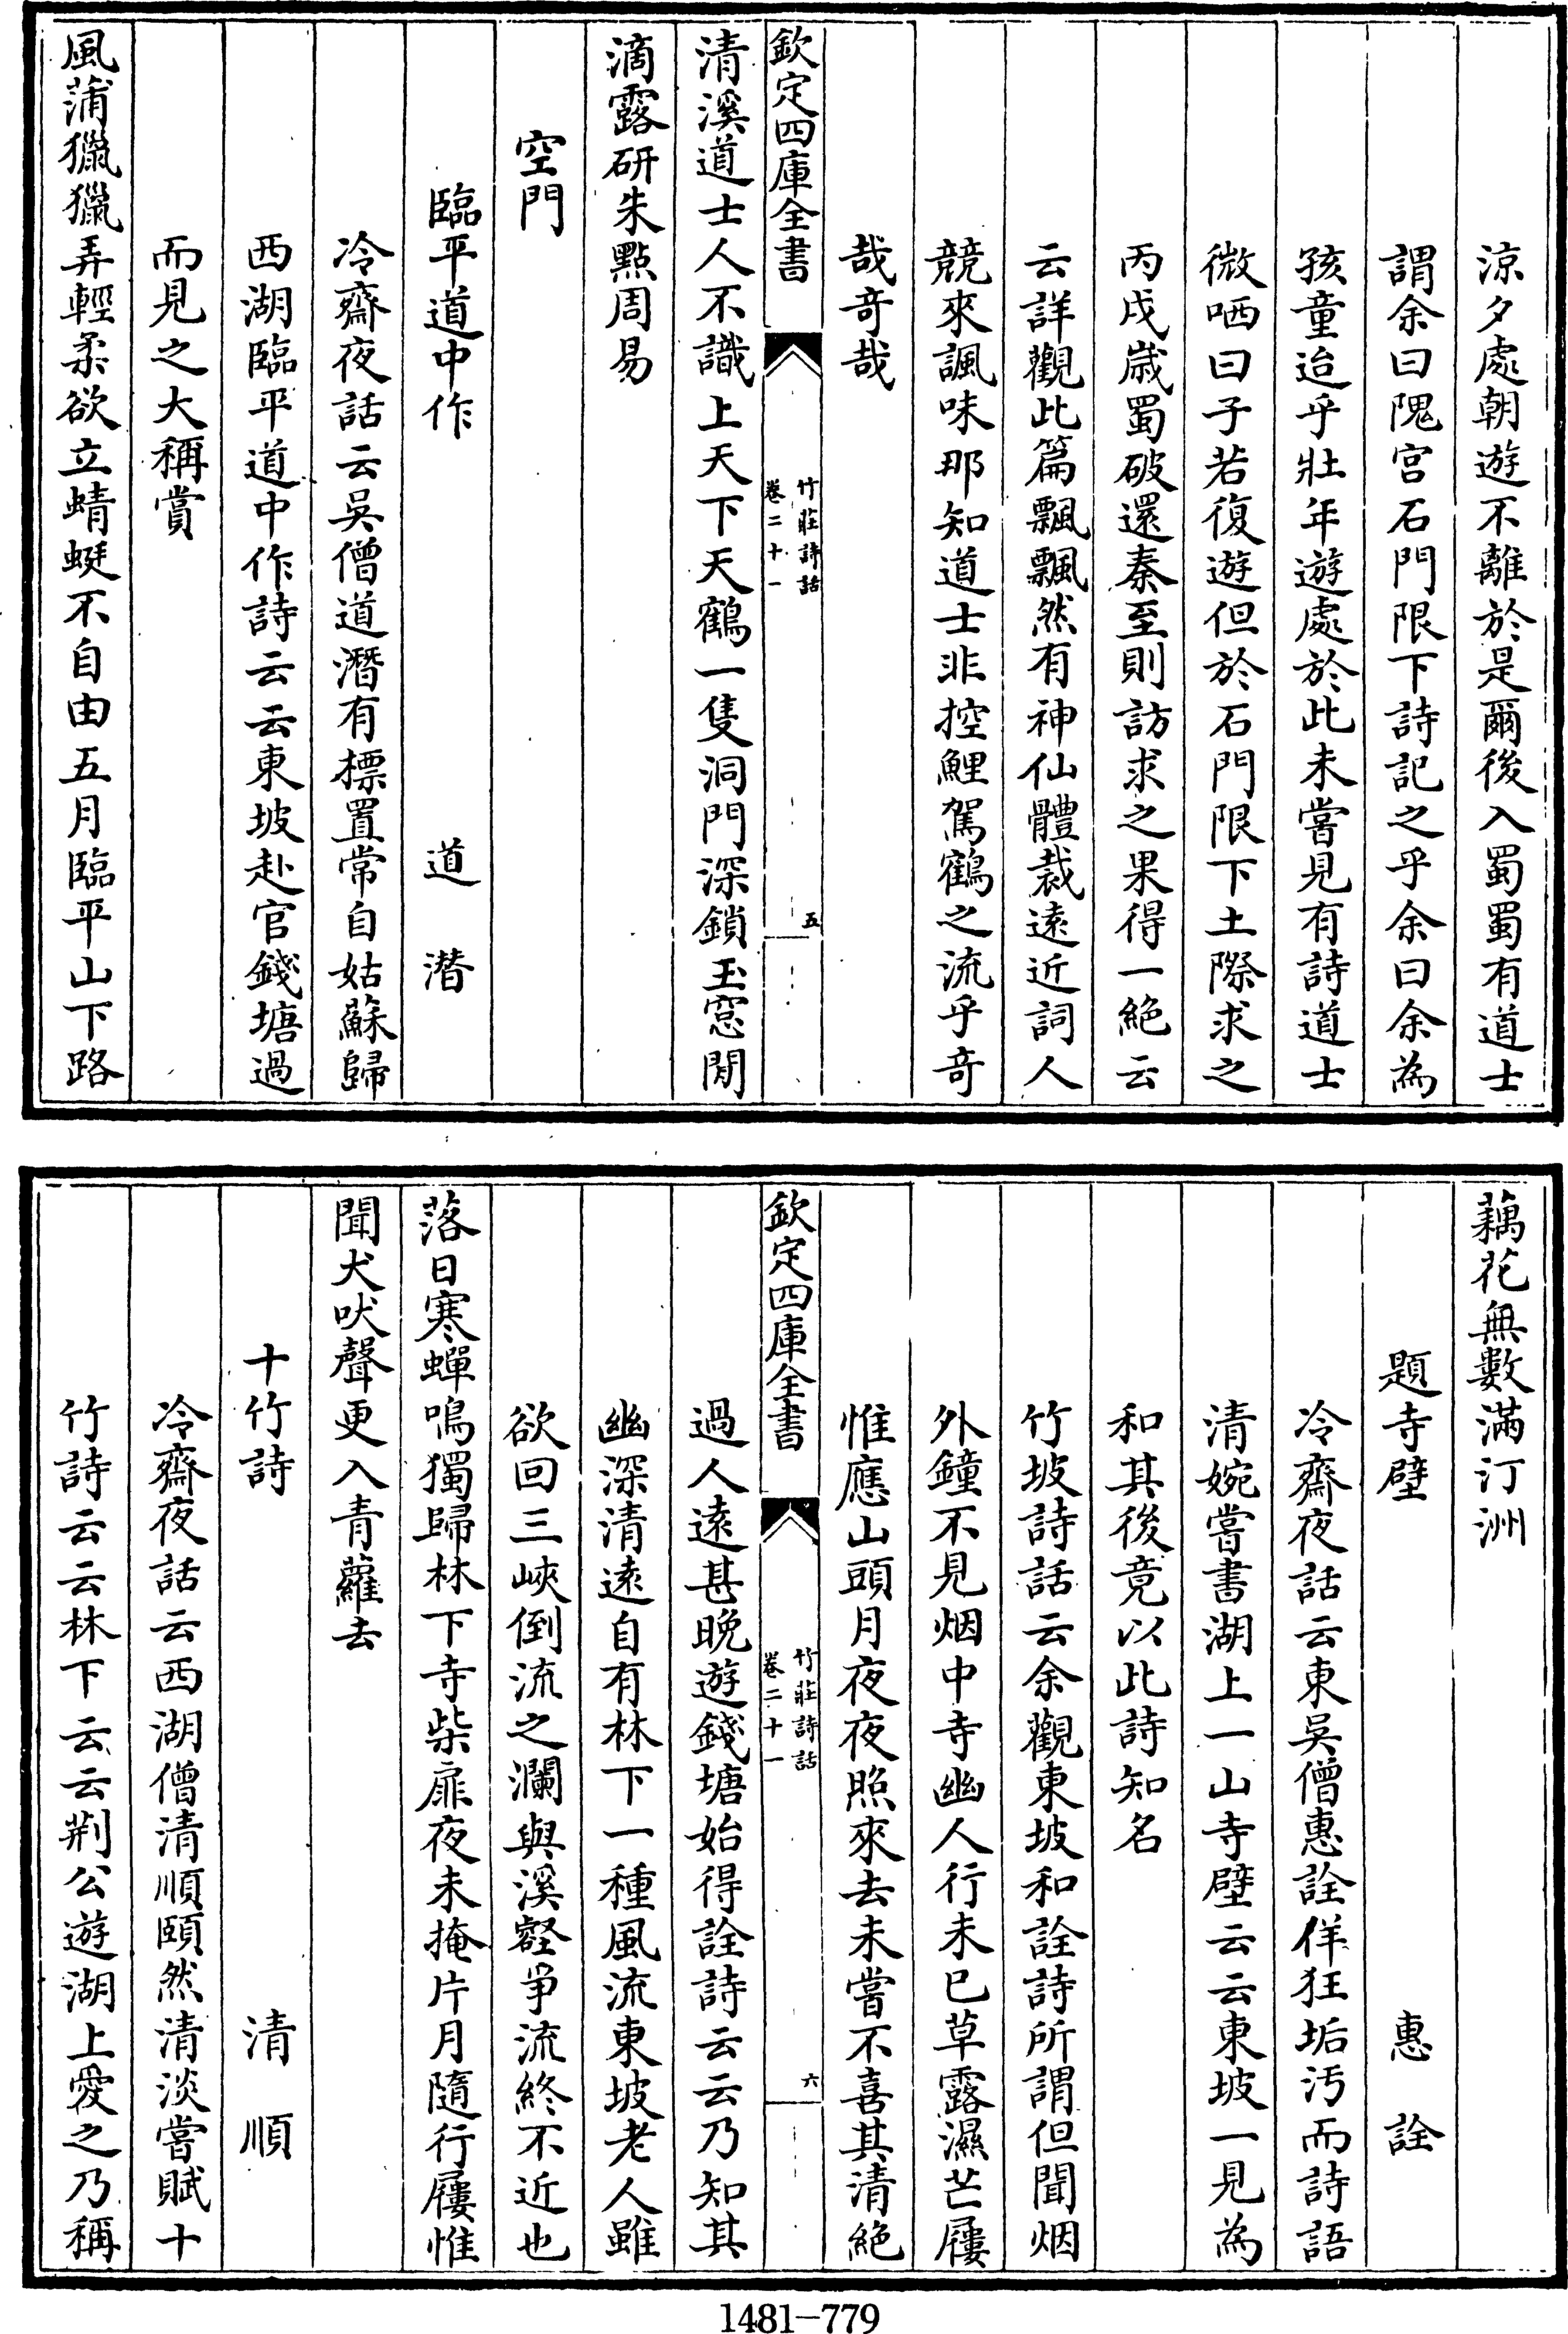 涼夕處朝遊不離於是爾後入蜀蜀有道士
謂余曰隗宫石門限下詩記之乎余曰余為
孩童迨乎壯年遊處於此未嘗見有詩道士
微哂曰子若復遊但於石門限下土際求之
丙戌歲蜀破還秦至則訪求之果得一絶云
云詳觀此篇飄飄然有神仙體裁遠近詞人
競來諷味那知道士非控鯉駕鶴之流乎奇
哉奇哉
欽定四庫全書
竹莊詩話
卷二十一
五
清溪道士人不識上天下天鶴一隻洞門深鎖玉窓閒
滴露研朱點周易
空門
臨平道中作 道潛
冷齋夜話云吳僧道潛有標置常自姑蘇歸
西湖臨平道中作詩云云東坡赴官錢塘過
而見之大稱賞
風蒲獵獵弄輕柔欲立蜻蜓不自由五月臨平山下路
藕花無數滿汀洲
題寺壁 惠詮
冷齋夜話云東吳僧惠詮佯狂垢汚而詩語
清婉嘗書湖上一山寺壁云云東坡一見為
和其後竟以此詩知名
竹坡詩話云余觀東坡和詮詩所謂但聞烟
外鐘不見烟中寺幽人行未已草露濕芒屨
惟應山頭月夜夜照來去未嘗不喜其清絶
欽定四庫全書
竹莊詩話
卷二十一
六
過人遠甚晚遊錢塘始得詮詩云云乃知其
幽深清遠自有林下一種風流東坡老人雖
欲回三峽倒流之瀾與溪壑爭流終不近也
落日寒蟬鳴獨歸林下寺柴扉夜未掩片月隨行屨惟
聞犬吠聲更入青蘿去
十竹詩 清順
冷齋夜話云西湖僧清順頤然清淡嘗賦十
竹詩云云林下云云荆公遊湖上愛之乃稱
1481-779